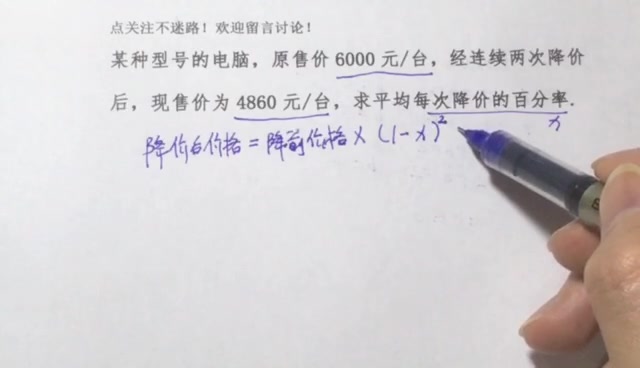 点关注不迷路！欢迎留言讨论！
某种型号的电脑，原售价 6000 元/台，经连续两次降价
后，现售价为 4860 元/台，求平均每次降价的百分率.
x
降价后价格 = 降前价格 × (1-x)²